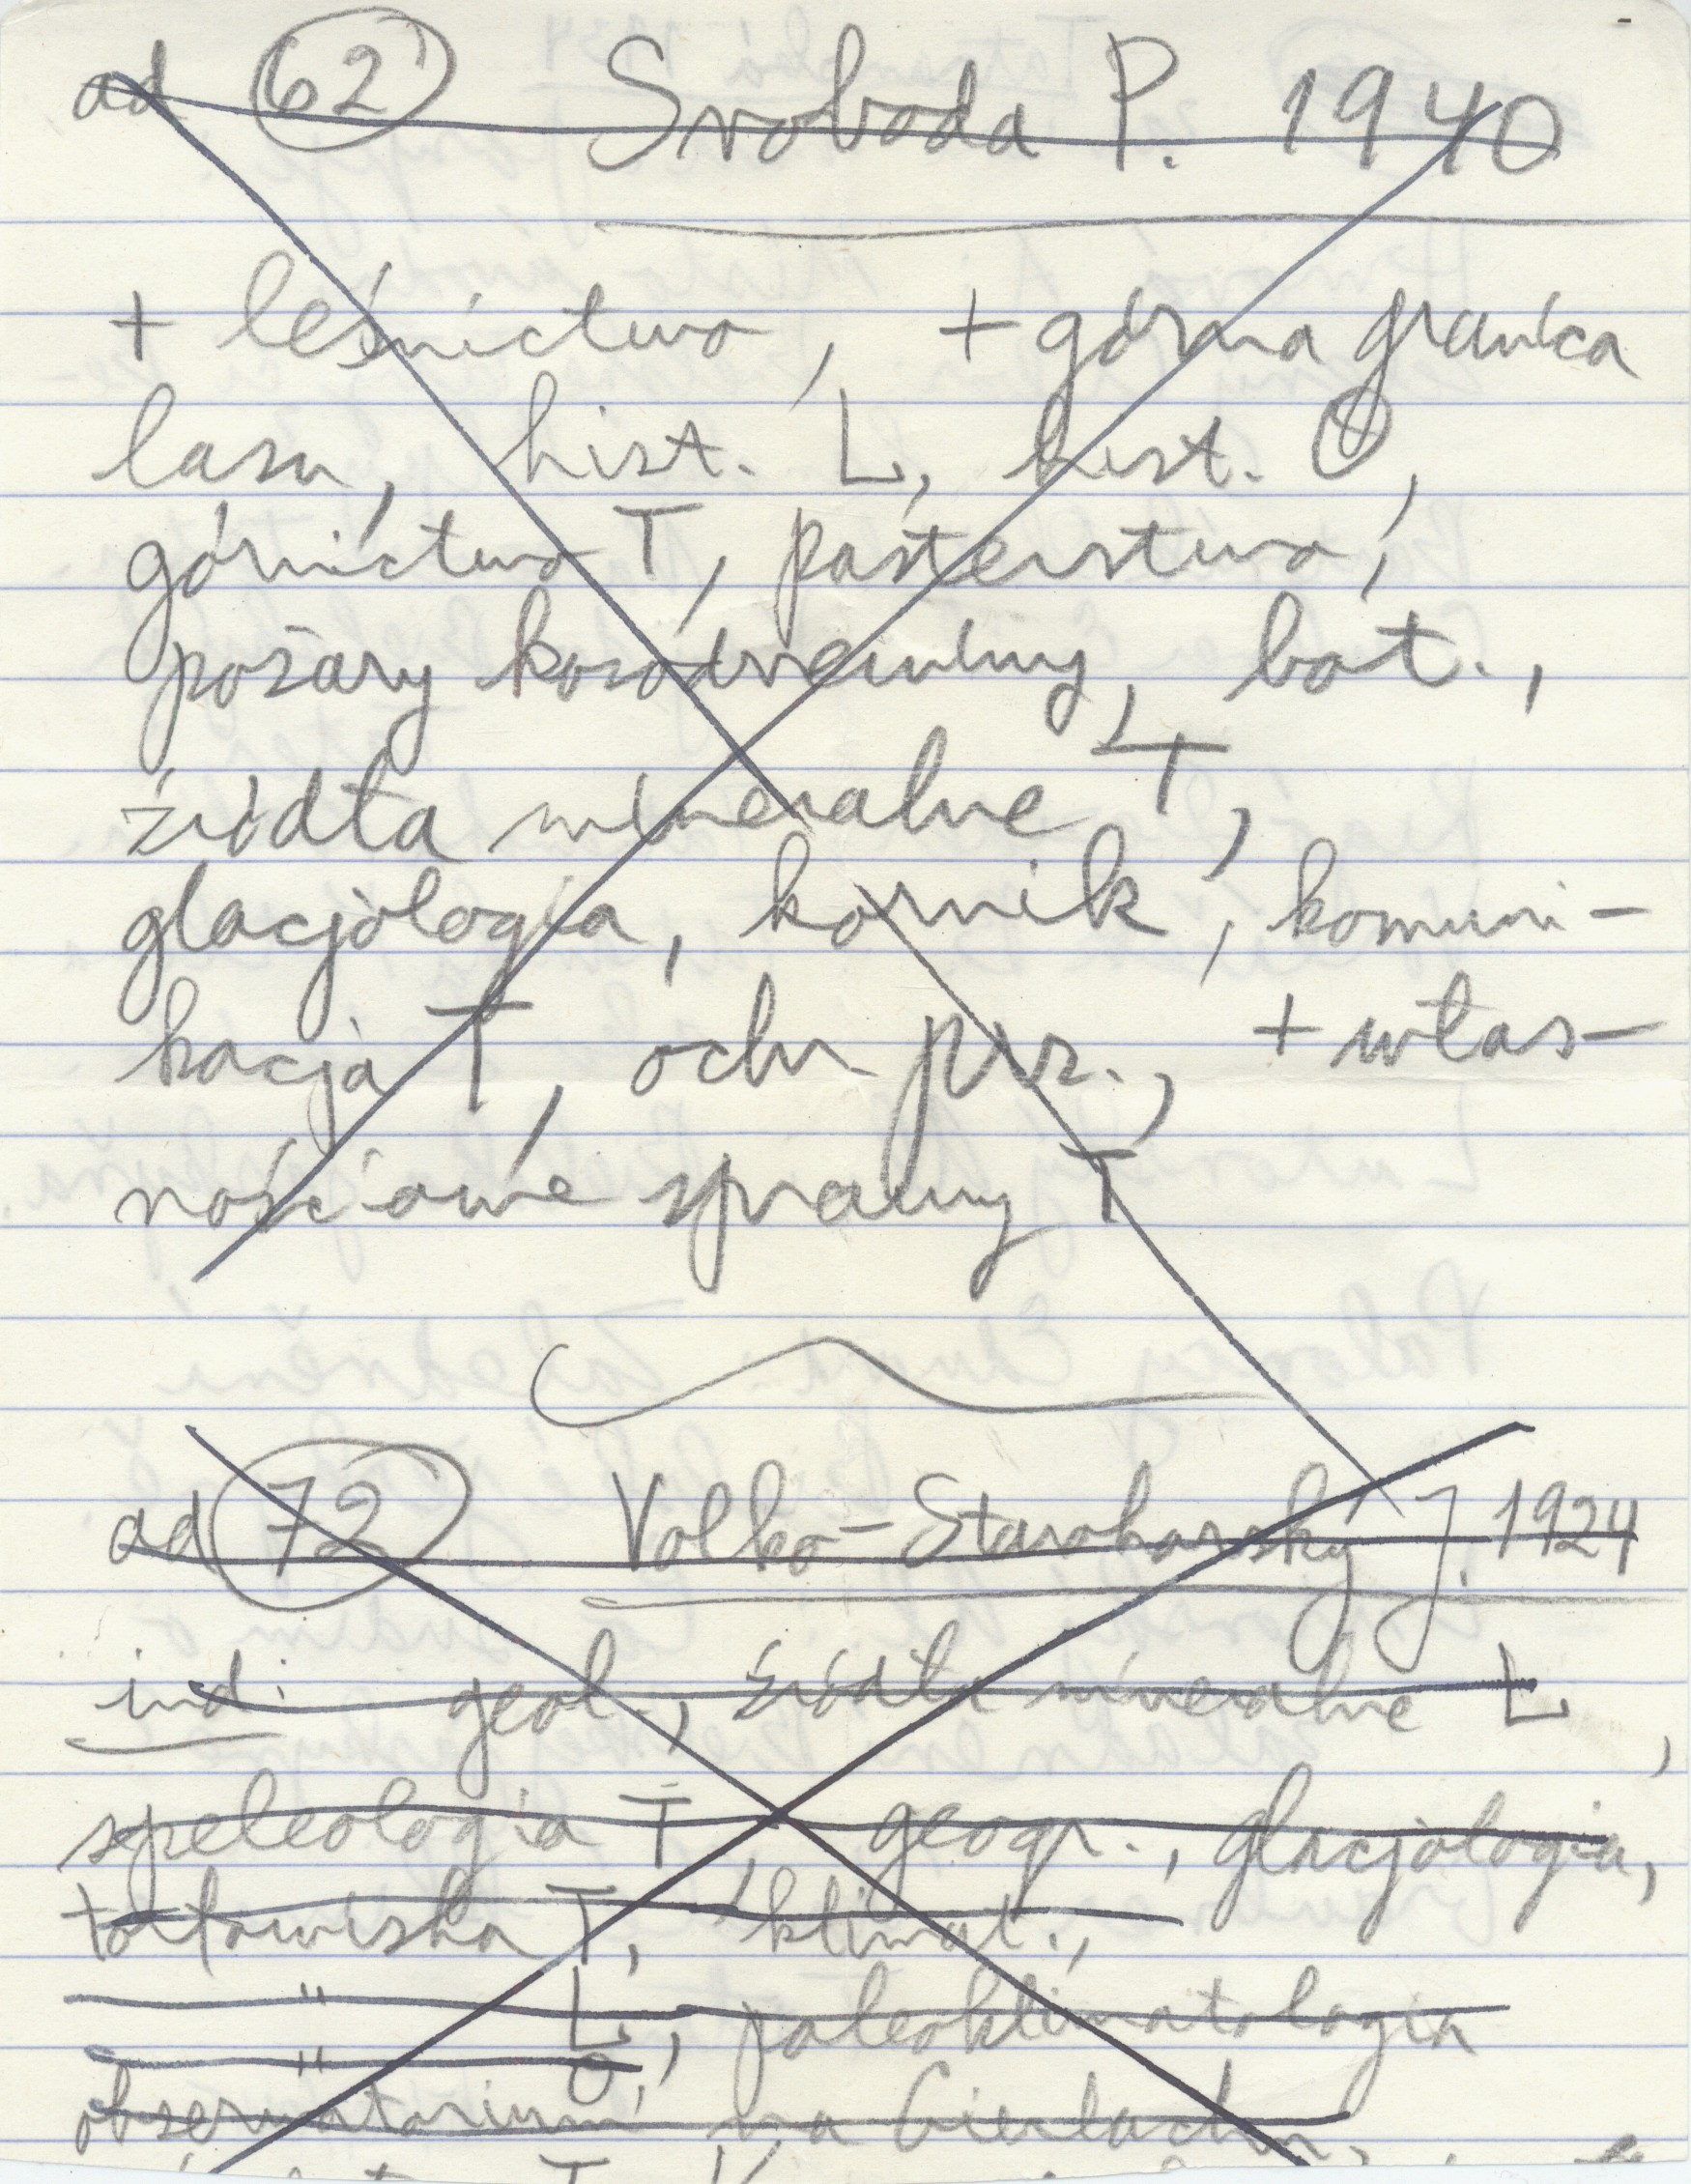 ad 62 Svoboda P. 1940
+ leśnictwo, + górna granica
lasu, hist. L, hist. O,
górnictwo T, pasterstwo,
pożary kosodrzewiny, bot.,
źródła mineralne T,
glacjologia, kornik, komuni-
kacja T, ochr. prz., + włas-
nościowe sprawy T
ad 72 Volko-Starohorský J. 1924
ind: geol., źródła mineralne L,
speleologia T, geogr., glacjologia,
torfowiska T, klimat.,
" L, paleoklimatologia
" O,
obserwatorium na Gierlachu,